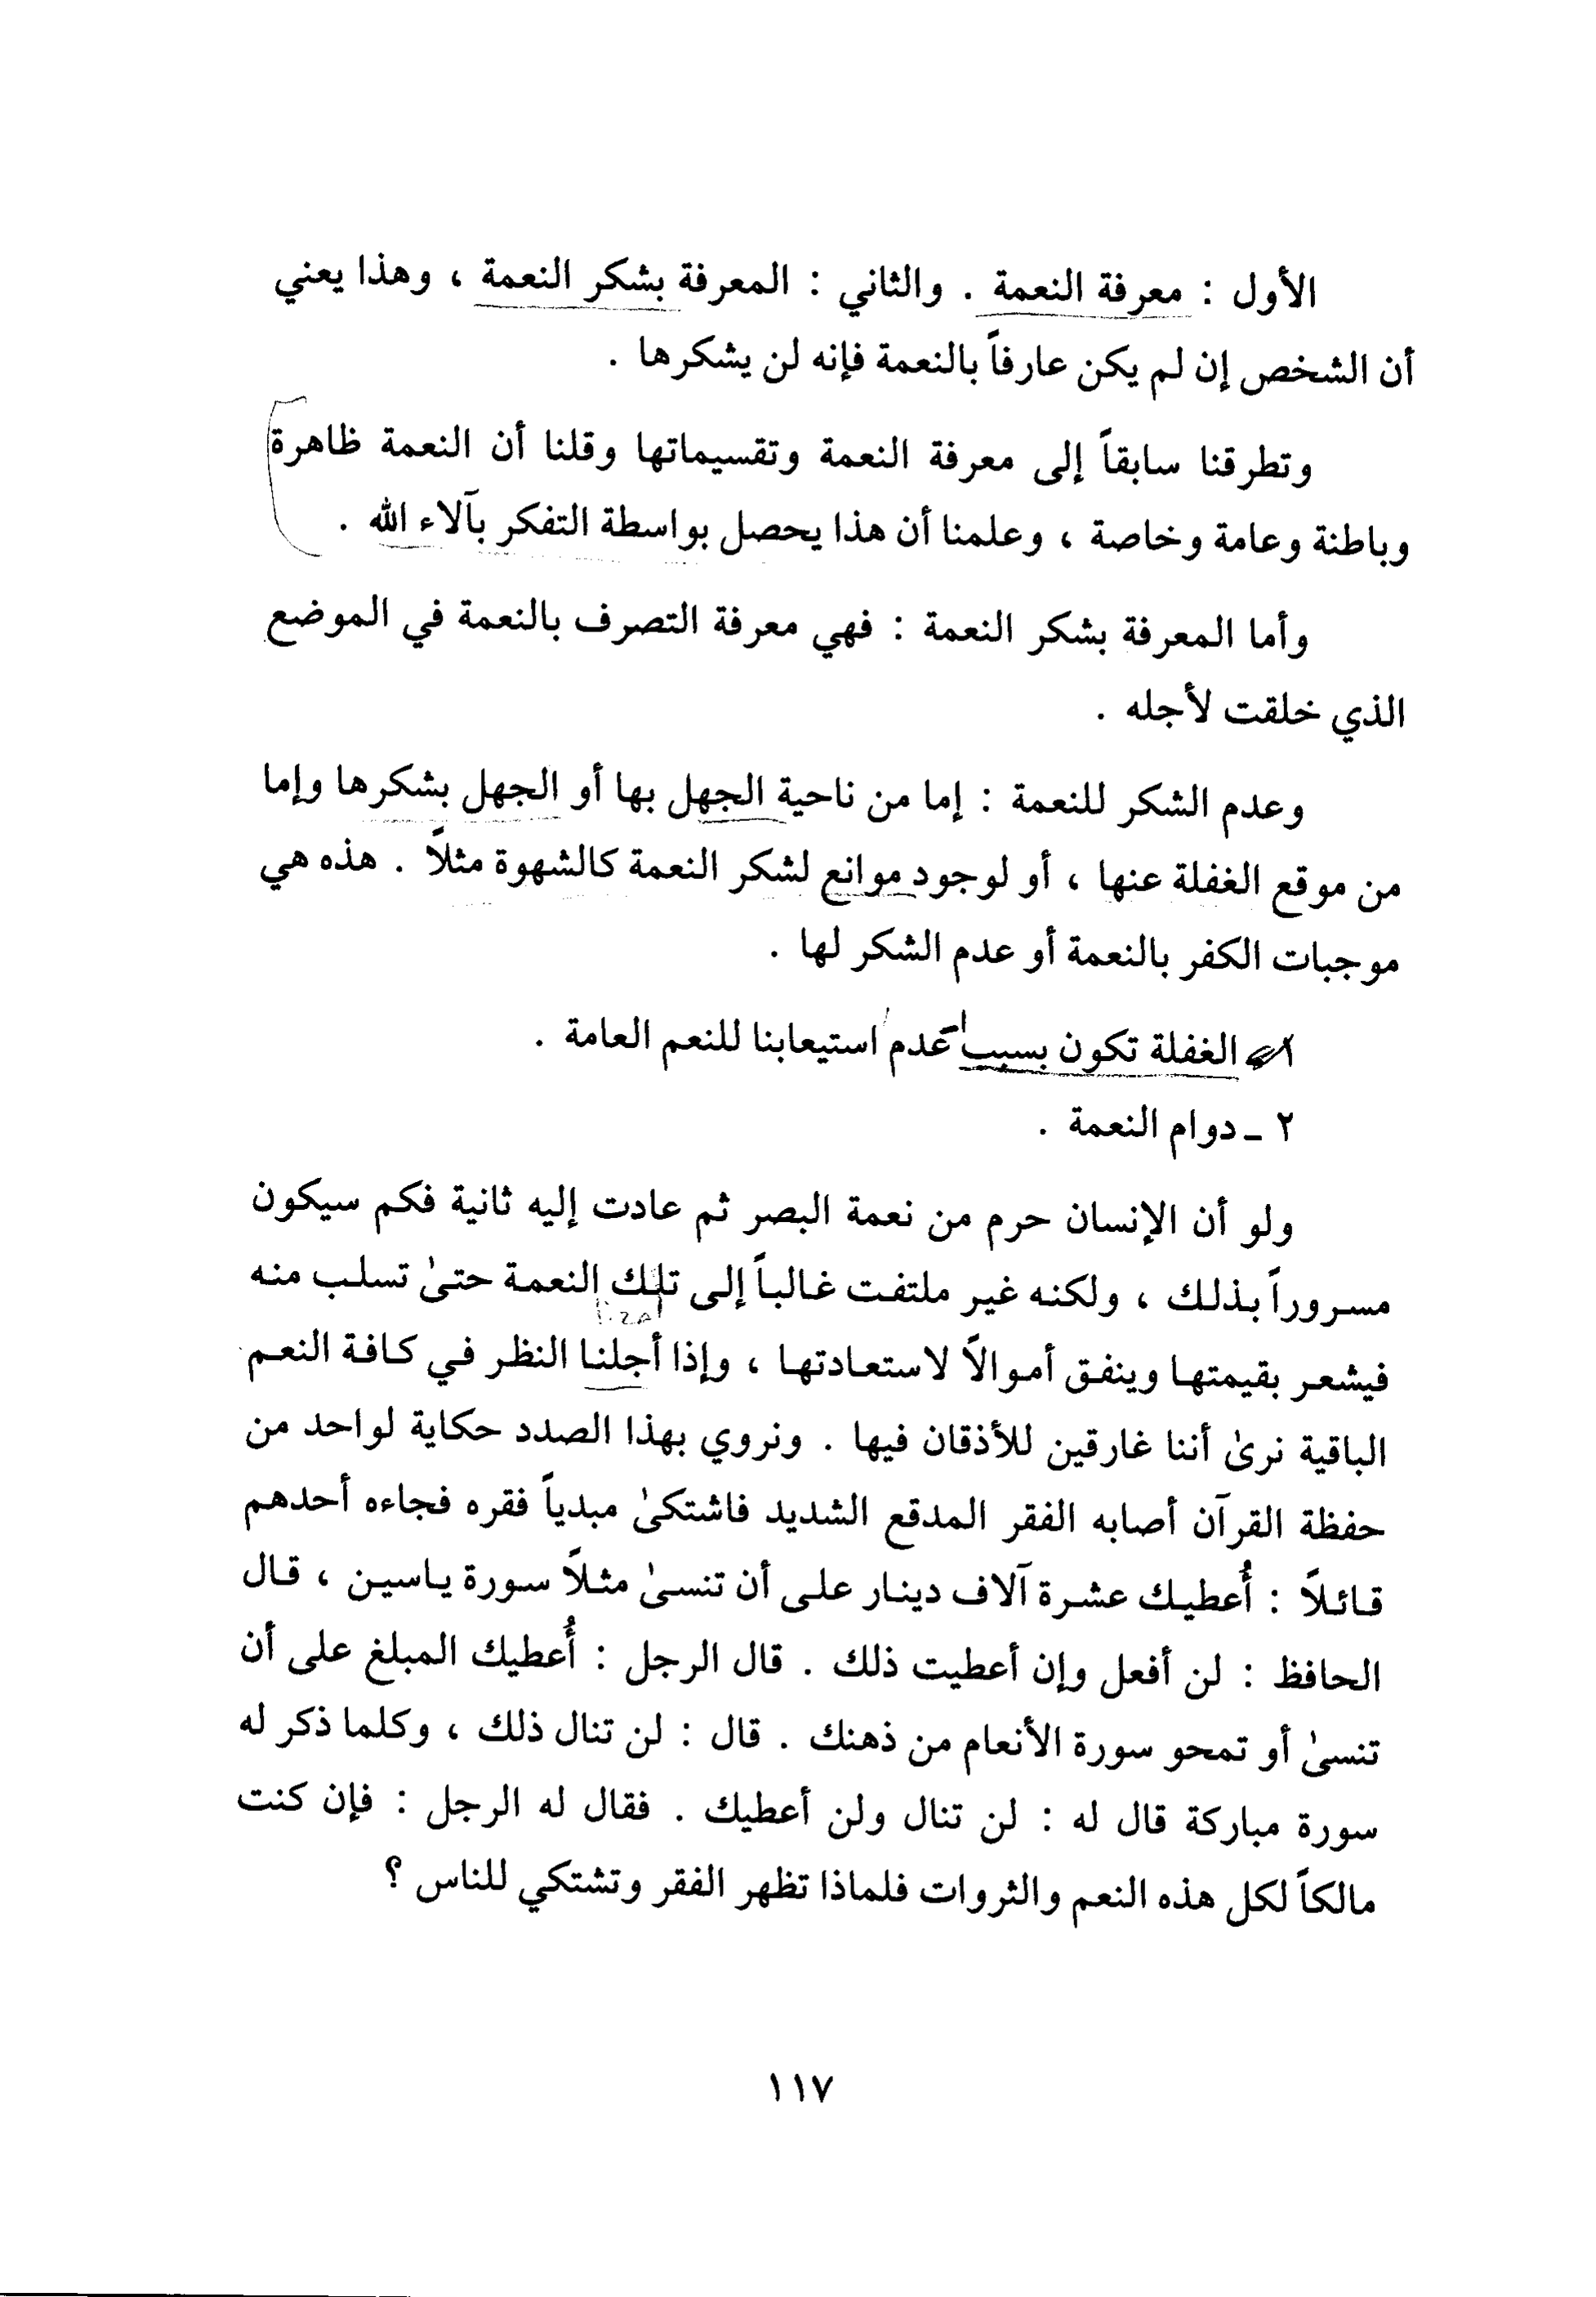 الأول : معرفة النعمة . والثاني : المعرفة بشكر النعمة ، وهذا يعني
أن الشخص إن لم يكن عارفاً بالنعمة فإنه لن يشكرها .
وتطرقنا سابقاً إلى معرفة النعمة وتقسيماتها وقلنا أن النعمة ظاهرة
وباطنة وعامة وخاصة ، وعلمنا أن هذا يحصل بواسطة التفكر بآلاء الله .
وأما المعرفة بشكر النعمة : فهي معرفة التصرف بالنعمة في الموضع
الذي خلقت لأجله .
وعدم الشكر للنعمة : إما من ناحية الجهل بها أو الجهل بشكرها وإما
من موقع الغفلة عنها ، أو لوجود موانع لشكر النعمة كالشهوة مثلاً . هذه هي
موجبات الكفر بالنعمة أو عدم الشكر لها .
الغفلة تكون بسبب ١- عدم استيعابنا للنعم العامة .
٢ ـ دوام النعمة .
ولو أن الإنسان حرم من نعمة البصر ثم عادت إليه ثانية فكم سيكون
مسروراً بذلك ، ولكنه غير ملتفت غالباً إلى تلك النعمة حتىٰ تسلب منه
فيشعر بقيمتها وينفق أموالاً لاستعادتها ، وإذا أجلنا النظر في كافة النعم
الباقية نرىٰ أننا غارقين للأذقان فيها . ونروي بهذا الصدد حكاية لواحد من
حفظة القرآن أصابه الفقر المدقع الشديد فاشتكىٰ مبدياً فقره فجاءه أحدهم
قائلاً : أُعطيك عشرة آلاف دينار على أن تنسىٰ مثلاً سورة ياسين ، قال
الحافظ : لن أفعل وإن أعطيت ذلك . قال الرجل : أُعطيك المبلغ على أن
تنسىٰ أو تمحو سورة الأنعام من ذهنك . قال : لن تنال ذلك ، وكلما ذكر له
سورة مباركة قال له : لن تنال ولن أعطيك . فقال له الرجل : فإن كنت
مالكاً لكل هذه النعم والثروات فلماذا تظهر الفقر وتشتكي للناس ؟
١١٧